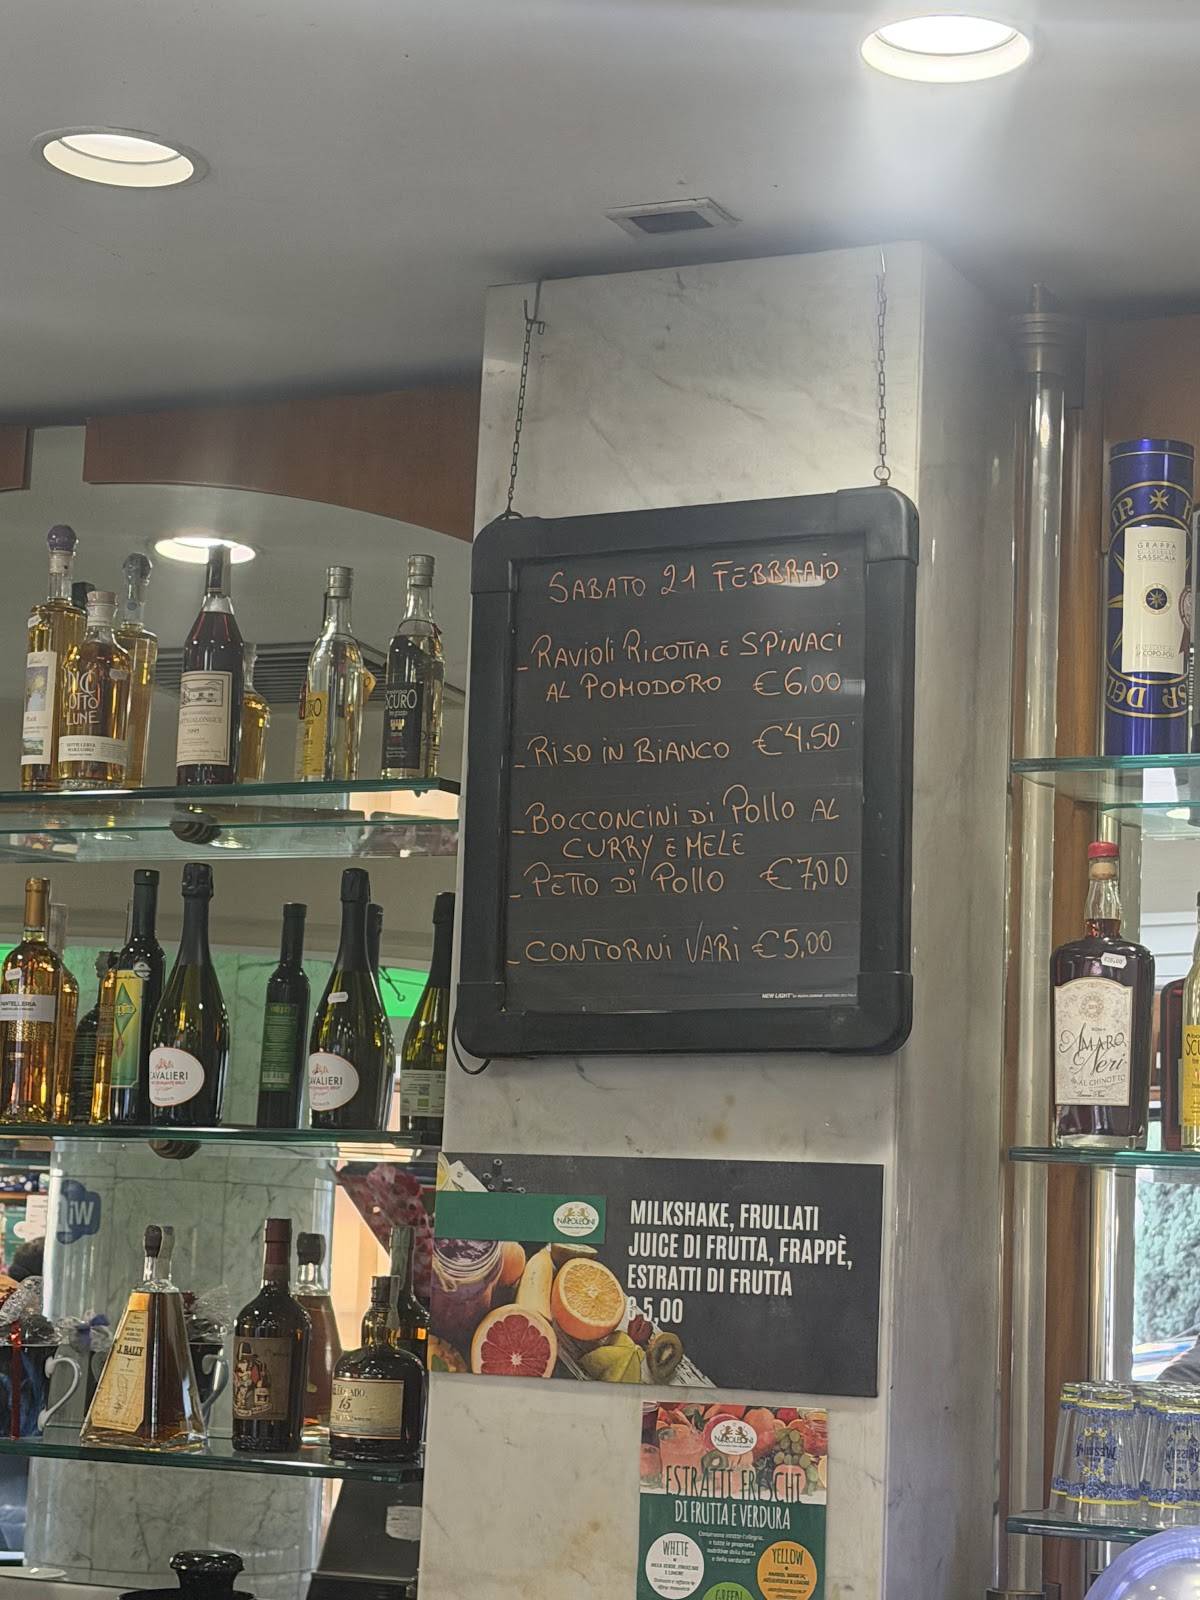 SABATO 21 FEBBRAIO
- RAVIOLI RICOTTA E SPINACI
AL POMODORO €6,00
- RISO IN BIANCO €4,50
- BOCCONCINI DI POLLO AL
CURRY E MELE
- PETTO DI POLLO €7,00
- CONTORNI VARI €5,00
NEW LIGHT
NAPOLEONI
MILKSHAKE, FRULLATI
JUICE DI FRUTTA, FRAPPÈ,
ESTRATTI DI FRUTTA
€ 5,00
NAPOLEONI
ESTRATTI FRESCHI
DI FRUTTA E VERDURA
WHITE
YELLOW
GREEN
GRAPPA
SASSICAIA
JACOPO POLI
AMARO
Neri
AL CHINOTTO
OTTO
LUNE
SCURO
CAVALIERI
CAVALIERI
J. BALLY
15
MESSINA